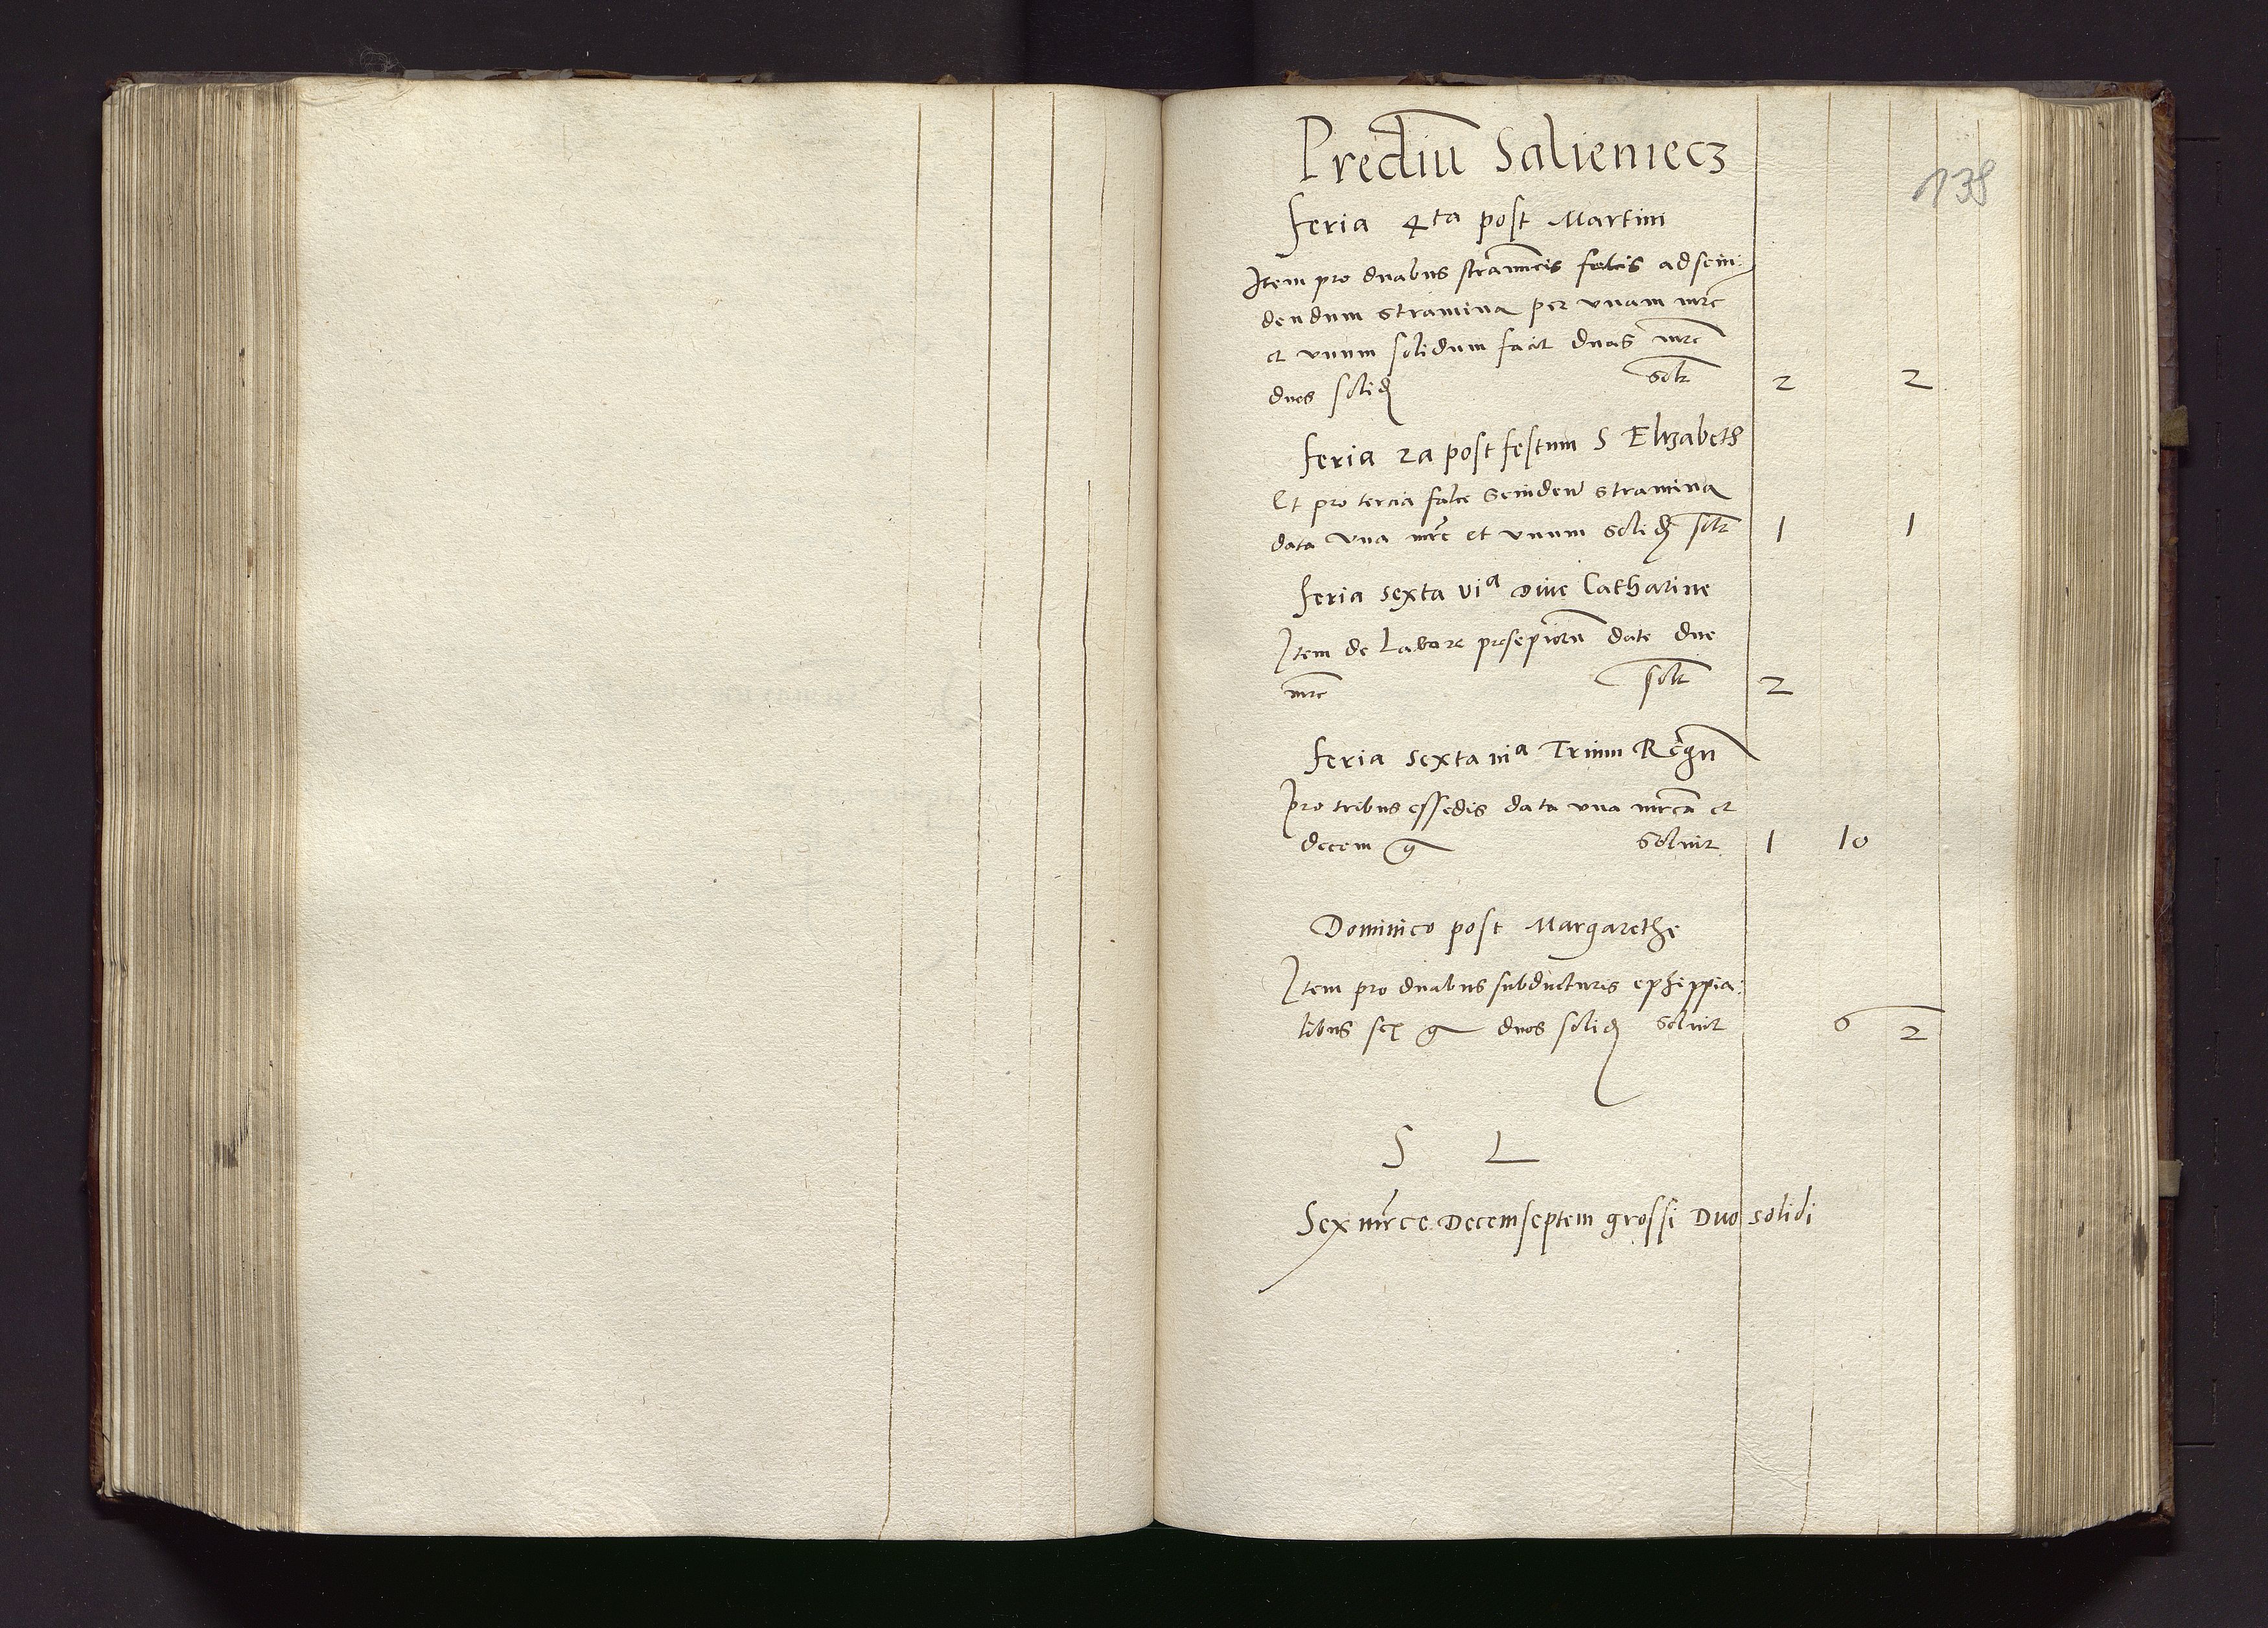 Prediū Salieniecz
138
feria 4ta post Martini
Item pro duabus stramineis falcis ad scin:
dendum stramina per vnam mrc̄
et vnum solidum facit duas mrc̄
duos solid solt 2 2
feria 2a post festum S Elizabeth
Et pro tercia falce scinden stramina
data vna mrc̄ et vnum solid solt 1 1
feria sexta via dive Catharine
Item de Labore presepiorū date due
mrc̄ solt 2
feria sexta Trium Regū
pro tribus essedis data vna mrcā et
decem g soluit 1 10
Dominico post Margarethe
Item pro duabus subducturis ephippia:
libus sex g duos solid soluit 6 2
S L
Sex mrce Decemseptem grossi Duo solidi